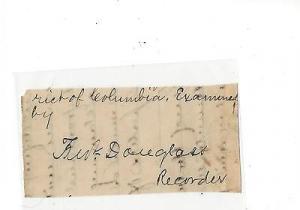 rict of Columbia, Examined
by
Fredk Douglass
Recorder